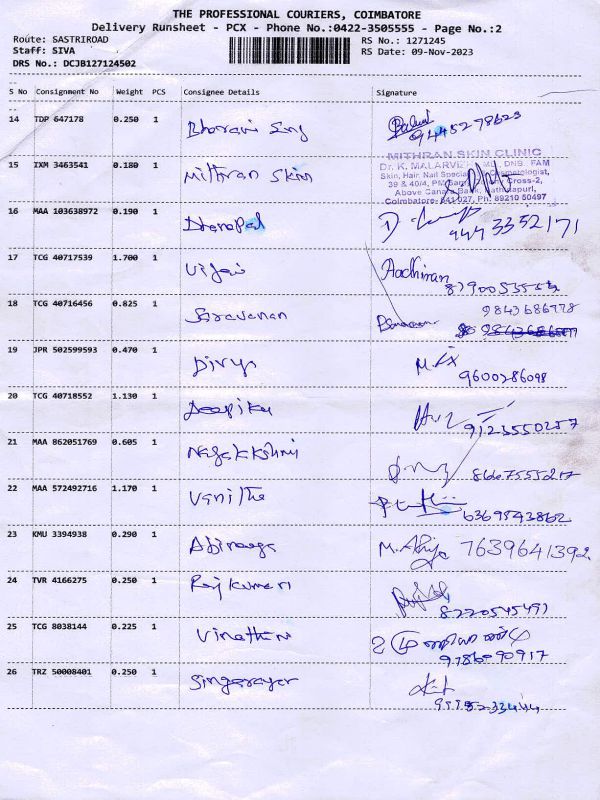 THE PROFESSIONAL COURIERS, COIMBATORE
Delivery Runsheet - PCX - Phone No.:0422-3505555 - Page No.:2
Route: SASTRIROAD
RS No.: 1271245
Staff: SIVA
RS Date: 09-Nov-2023
DRS No.: DCJB127124502
S No Consignment No Weight PCS Consignee Details Signature
14 TDP 647178 0.250 1 Bharani
9445278623
15 IXM 3463541 0.180 1 Mithran Skin
MITHRAN SKIN CLINIC
Dr. K. MALARVIZHI DNB, FAM
Skin, Hair, Nail Cosmetologist,
39 & 40/4, Cross-2,
Above Canara Bank,
Coimbatore- 641 027, Ph: 89210 50497
16 MAA 103638972 0.190 1 Dhanapal
944 3352171
17 TCG 40717539 1.700 1 Vijai Aadhiran
18 TCG 40716456 0.825 1 Saravanan
9843686778
19 JPR 502599593 0.470 1 Divya
9600286098
20 TCG 40718552 1.130 1 Deepika
9123550257
21 MAA 862051769 0.605 1 Nagalakshmi
8667555217
22 MAA 572492716 1.170 1 Vanitha
6369543862
23 KMU 3394938 0.290 1 Abinaya M. 7639641392
24 TVR 4166275 0.250 1 Rajkumari
8220545491
25 TCG 8038144 0.225 1
26 TRZ 50008401 0.250 1 Singarayar